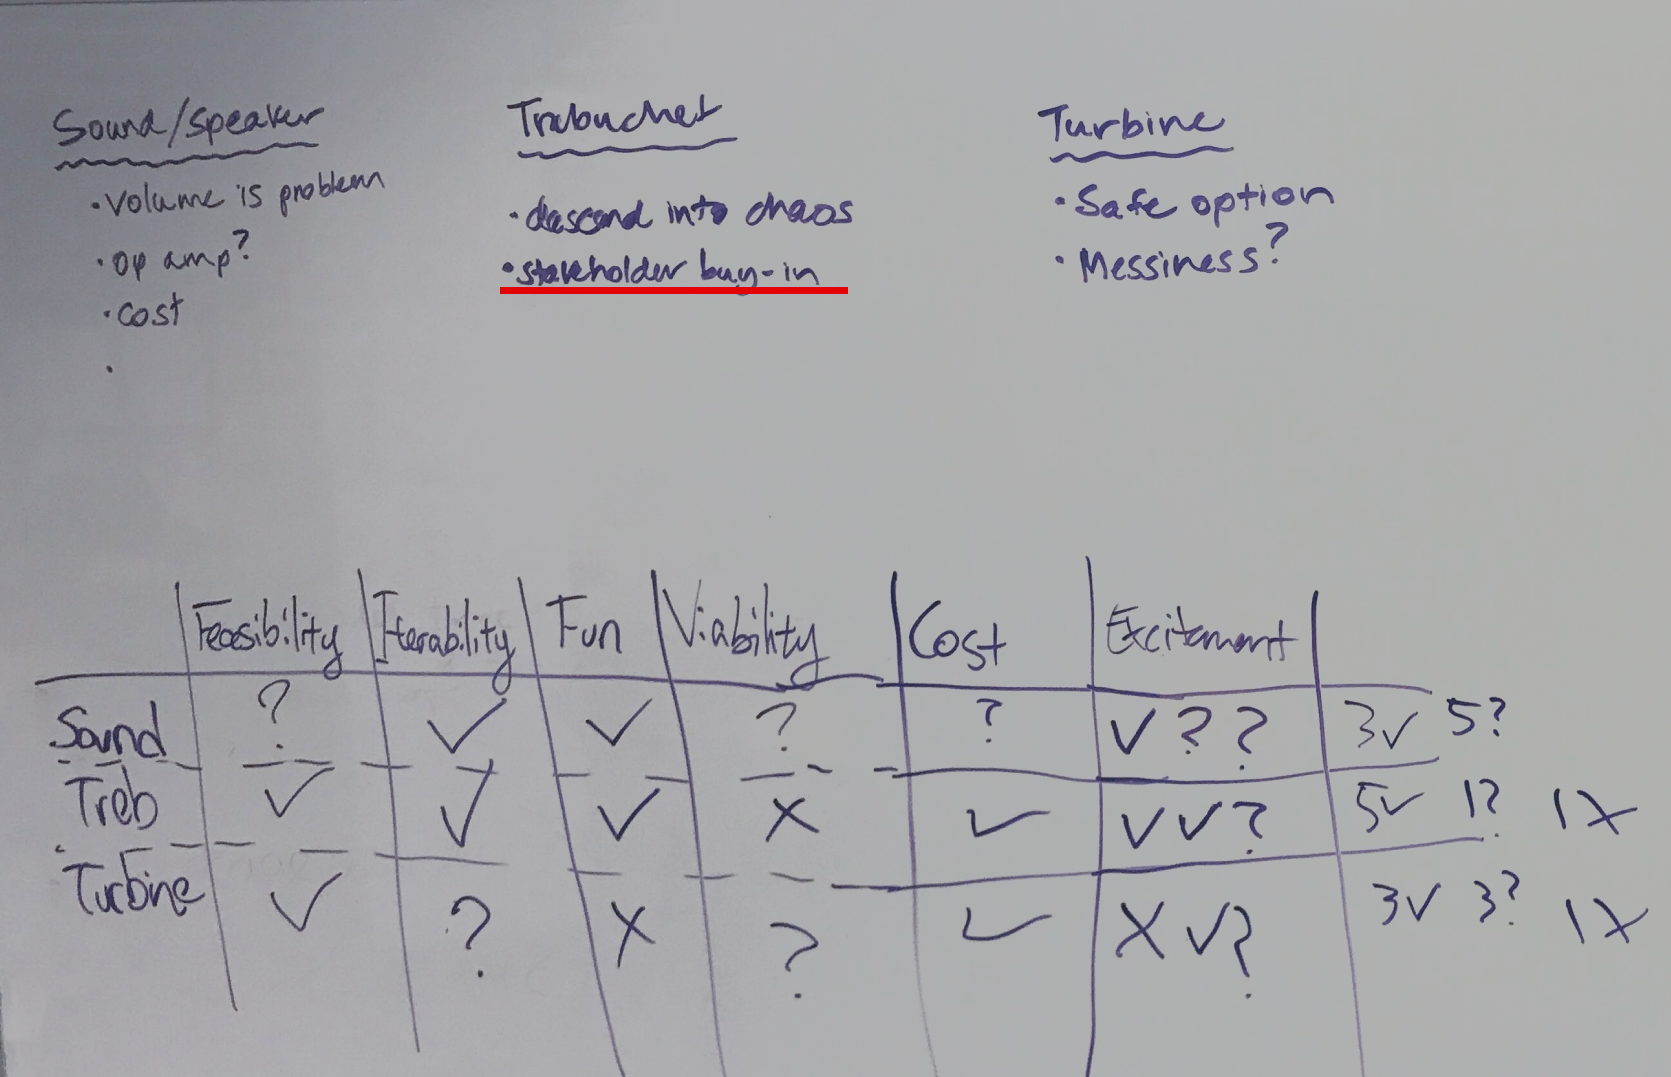 Sound/speaker
• volume is problem
• op amp?
• cost
•
Trebuchet
• descend into chaos
• stakeholder buy-in
Turbine
• Safe option
• Messiness?
Feasibility Iterability Fun Viability Cost Excitement
Sound ? ✓ ✓ ? ? ✓ ? ? 3✓ 5?
Treb ✓ ✓ ✓ X ✓ ✓ ✓ ? 5✓ 1? 1X
Turbine ✓ ? X ? ✓ X ✓ ? 3✓ 3? 1X